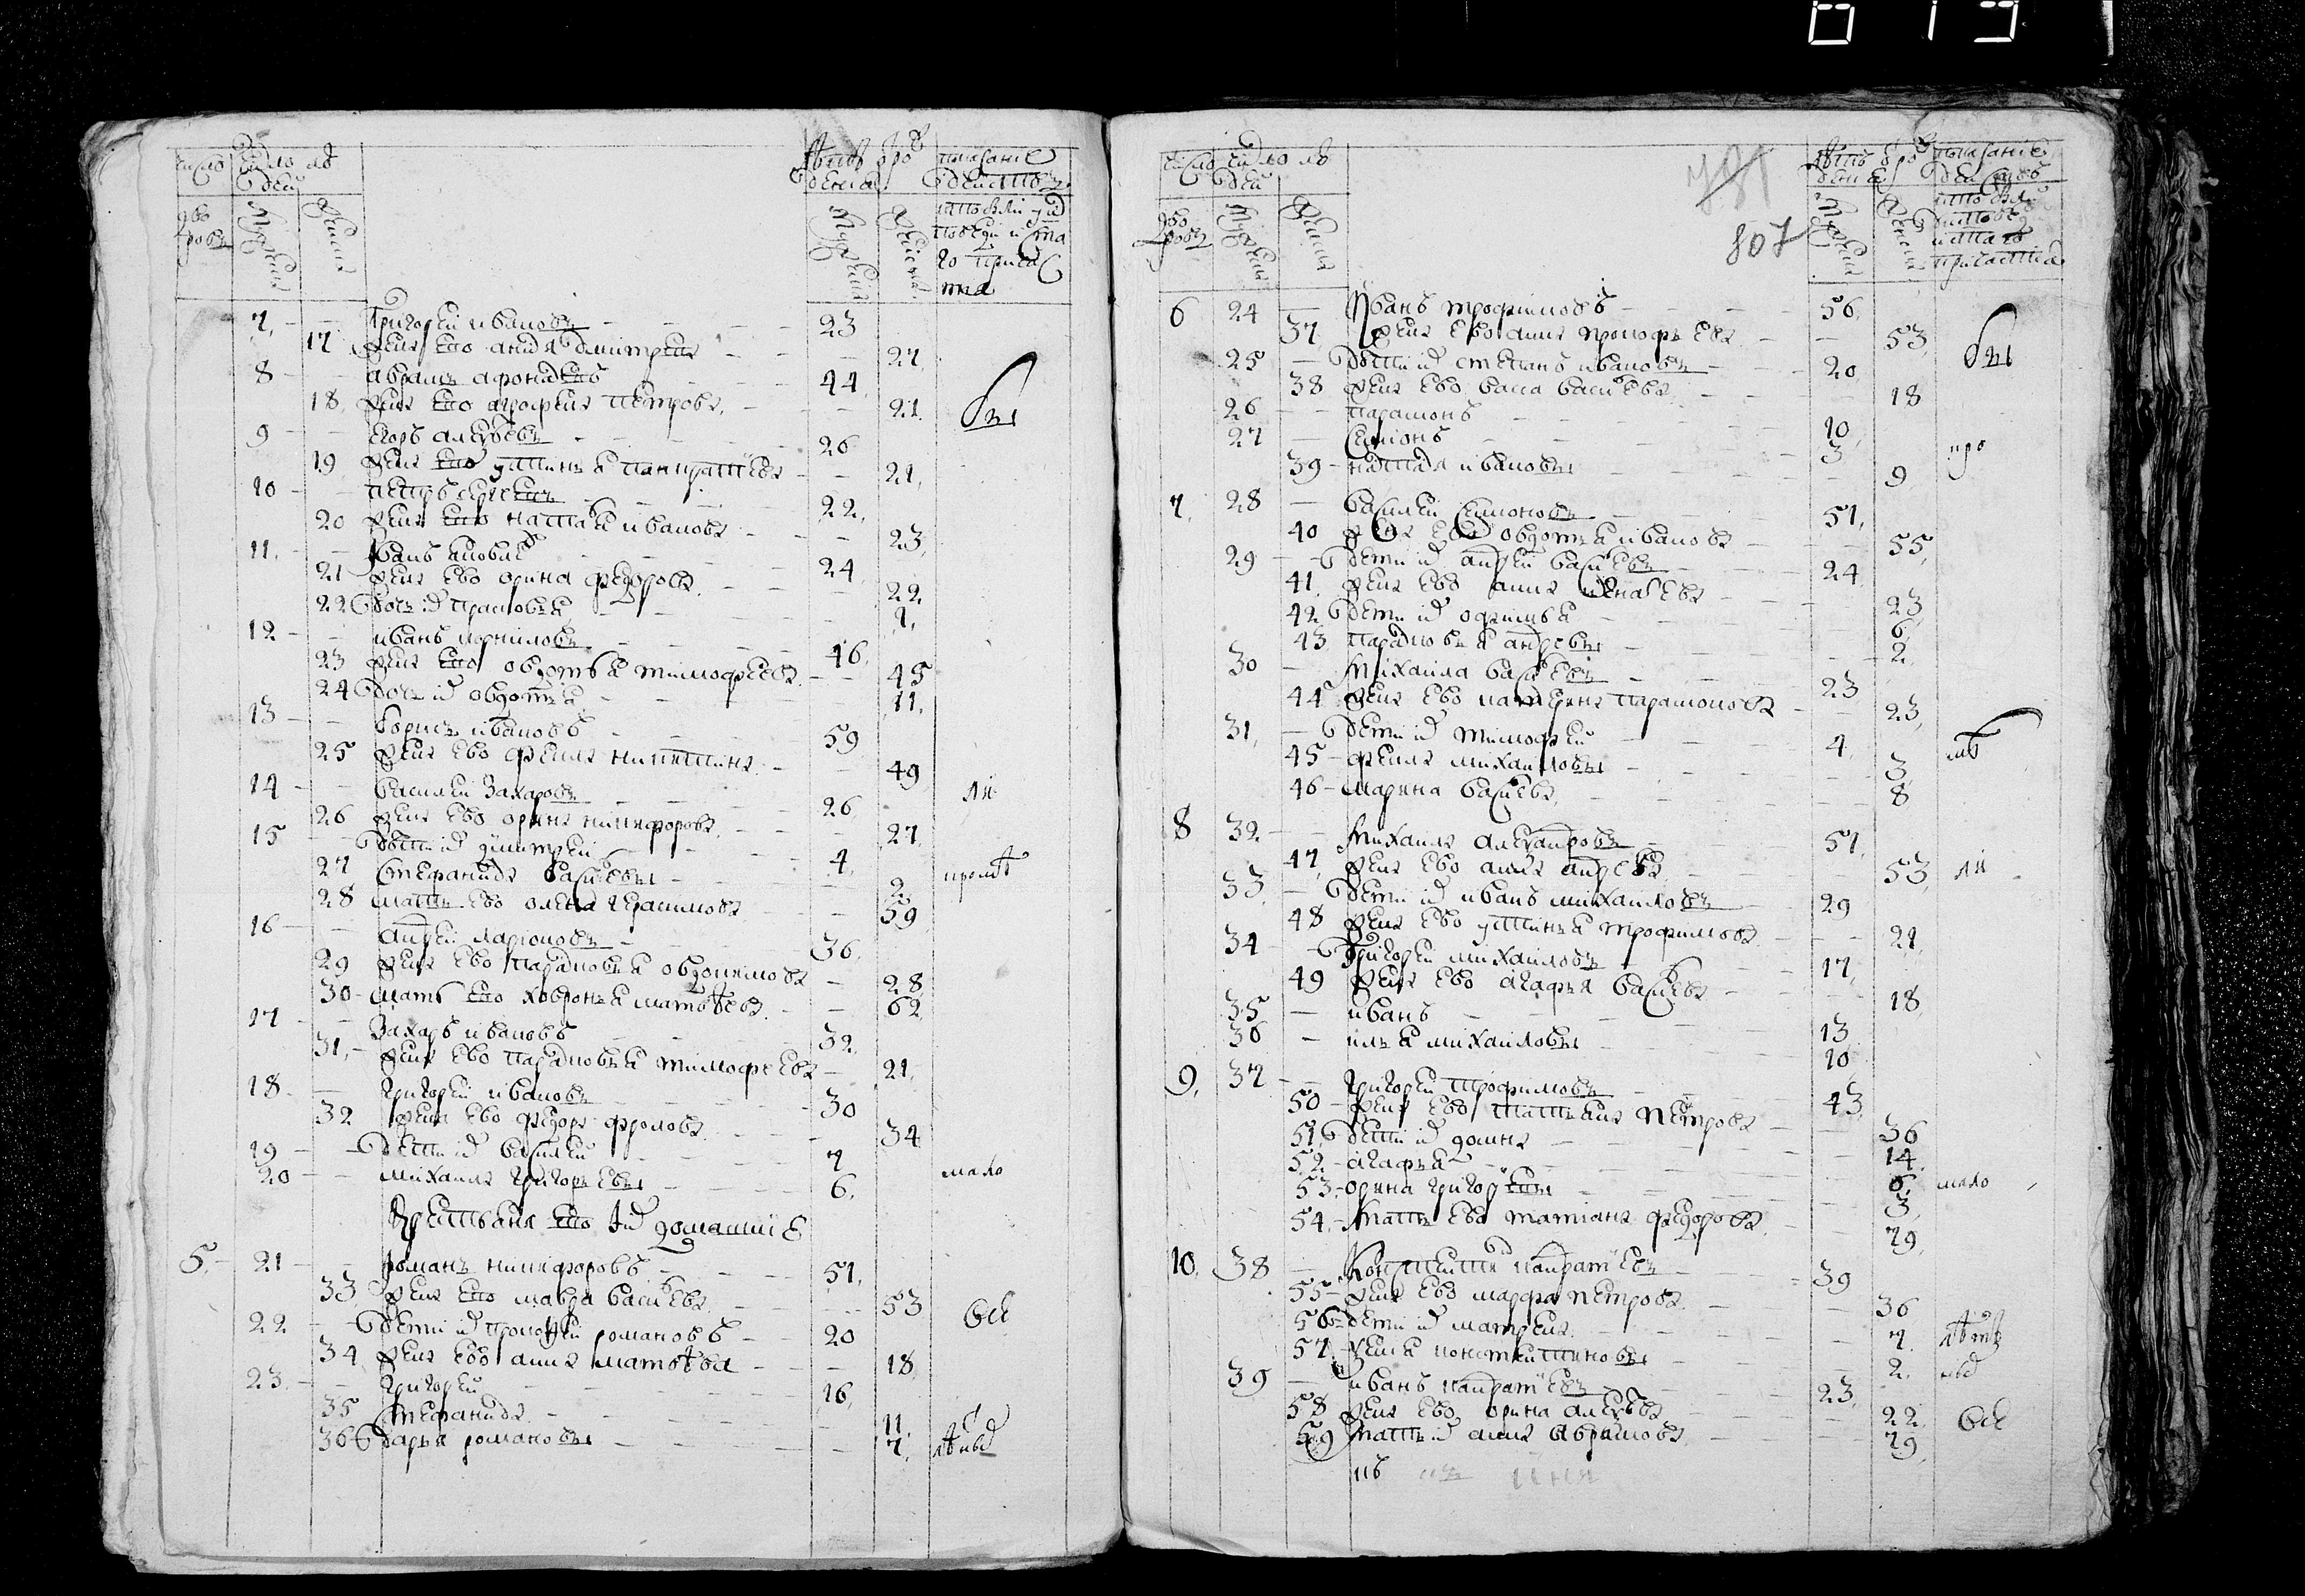 число людей
лѣтъ рождениа
показание действа
дворовъ
мужеска
женска
7 Григорей Ивановъ 23
17 жена ево анна дмитреева 27
8 абрамъ афонасевъ 44
18 жена ево аграфена петрова 21
бы
9 егоръ алексѣевъ 26
19 жена ево устинья панкратіева 21
10 петръ сергеевъ 22
20 жена ево наталья иванова 23
11 Иванъ 24
21 жена ево орина федорова 22
22 дочь их прасковья 1
12 иванъ корниловъ 46
23 жена ево овдотья тимофеева 45
24 дочь их овдотья 11
13 борисъ ивановъ 59
25 жена ево фекла никитина 49
14 василей Захаровъ 26
ли
26 жена ево орина никифорова 27
15 дети их дмитрей 4
27 Стефанида васильевы 2
кромѣ
28 мать ево олена герасимова 59
16 андрей ларионовъ 36
29 жена ево парасковья овдокимова 28
30 мать ево ховронья матвѣева 62
17 Захаръ ивановъ 32
31 жена ево парасковья тимофеева 21
18 григорей ивановъ 30
32 жена ево федора фролова 34
19 дети их василей 7
20 михаила григорьевы 6
мало
Крестьяня ево и их домашніе
5 21 романъ никифоровъ 51
33 жена ево мавра васильева 53
все
22 дети их прокофей романовъ 20
34 жена ево анна матвѣева 18
23 григорей 16
35 Стефанида 11
36 дарья романовы 7
781
807
число людей
дворовъ
мужеска
женска
6 24 Иванъ трофимовъ 56
37 жена ево анна прокофьева 53
бы
25 дети их степанъ ивановъ 20
38 жена ево васса васильева 18
26 парамонъ 10
27 Симіонъ 3
39 наталья ивановы 9
кро
7 28 василей Симіоновъ 51
40 жена ево овдотья иванова 55
29 дети их андрей васильевъ 24
41 жена ево анна игнатьева 23
42 дети их офимья 6
43 парасковья андреевы 2
30 Михаила васильевъ 23
44 жена ево катерина парамонова 23
31 дети их тимофей 4
мѣ
45 фекла михайловы 3
46 марина васильева 8
8 32 Михаила александровъ 51
47 жена ево анна андреева 53
ли
33 дети их иванъ михайловъ 29
48 жена ево устинья трофимова 21
34 Григорей михайловъ 17
49 жена ево агафья васильева 18
35 иванъ 13
36 илья михайловы 10
9 37 григорей трофимовъ 43
50 жена ево татьяна петрова 36
51 дети их домна 14
52 агафья 6
53 орина григорьевы 3
мало
54 мать ево татіана федорова 79
10 38 Констентинъ кандратіевъ 39
55 жена ево марфа петрова 36
56 дети их матрена 7
лѣт
57 фекла констентиновы 2
39 иванъ кандратіевъ 23
58 жена ево орина алексѣева 22
все
59 мать их анна абрамова 79